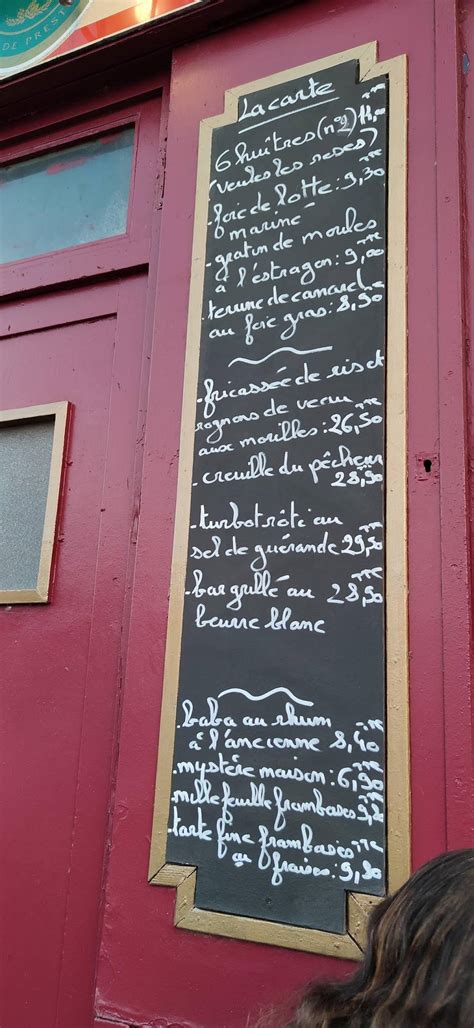 DE PREST
La carte
6 huîtres (n°2) 11,00
(veules les roses)
- foie de lotte : 9,30
mariné
- gratin de moules
à l'éstragon : 9,00
- terrine de canard
au foie gras : 8,90
- fricassée de ris et
rognons de veau
aux morilles : 26,50
- creuille du pêcheur
28,90
- turbot rôti au
sel de guérande 29,50
- bar grillé au 28,50
beurre blanc
- baba au rhum
à l'ancienne 8,40
- mystère maison : 6,90
- mille feuille framboises
- tarte fine framboises
ou fraises : 9,80